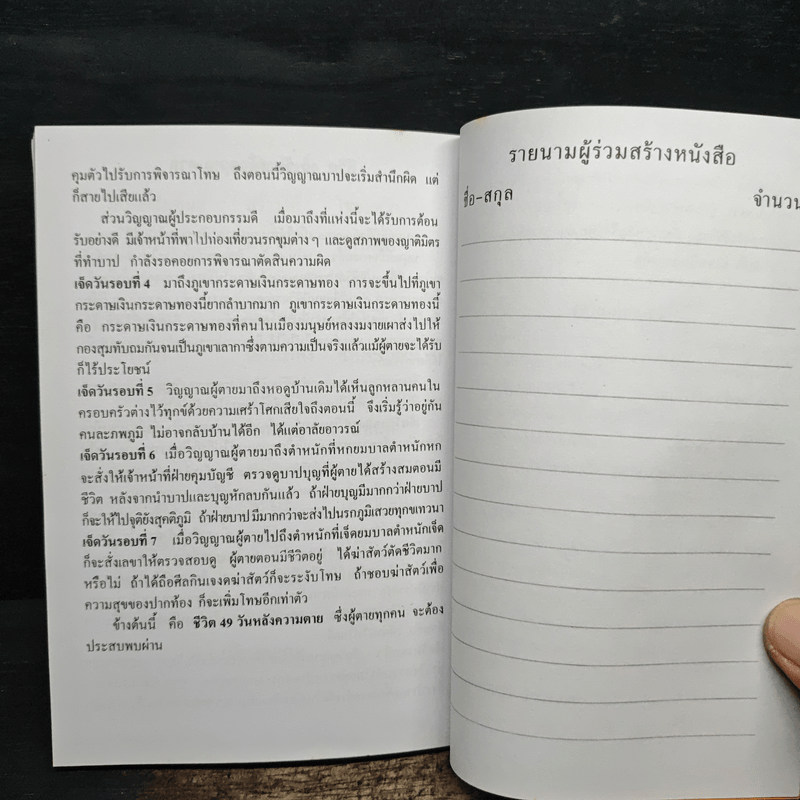 คุมตัวไปรับการพิจารณาโทษ ถึงตอนนี้วิญญาณบาปจะเริ่มสำนึกผิด แต่
ก็สายไปเสียแล้ว
ส่วนวิญญาณผู้ประกอบกรรมดี เมื่อมาถึงที่แห่งนี้จะได้รับการต้อน
รับอย่างดี มีเจ้าหน้าที่พาไปท่องเที่ยวนรกขุมต่าง ๆ และดูสภาพของญาติมิตร
ที่ทำบาป กำลังรอคอยการพิจารณาตัดสินความผิด
เจ็ดวันรอบที่ 4 มาถึงภูเขากระดาษเงินกระดาษทอง การจะขึ้นไปที่ภูเขา
กระดาษเงินกระดาษทองนี้ยากลำบากมาก ภูเขากระดาษเงินกระดาษทองนี้
คือ กระดาษเงินกระดาษทองที่คนในเมืองมนุษย์หลงงมงายเผาส่งไปให้
กองสุมทับถมกันจนเป็นภูเขาเลากาซึ่งตามความเป็นจริงแล้วแม้ผู้ตายจะได้รับ
ก็ไร้ประโยชน์
เจ็ดวันรอบที่ 5 วิญญาณผู้ตายมาถึงหอดูบ้านเดิมได้เห็นลูกหลานคนใน
ครอบครัวต่างไว้ทุกข์ด้วยความเศร้าโศกเสียใจถึงตอนนี้ จึงเริ่มรู้ว่าอยู่กัน
คนละภพภูมิ ไม่อาจกลับบ้านได้อีก ได้แต่อาลัยอาวรณ์
เจ็ดวันรอบที่ 6 เมื่อวิญญาณผู้ตายมาถึงตำหนักที่หกยมบาลตำหนักหก
จะสั่งให้เจ้าหน้าที่ฝ่ายคุมบัญชี ตรวจดูบาปบุญที่ผู้ตายได้สร้างสมตอนมี
ชีวิต หลังจากนำบาปและบุญหักลบกันแล้ว ถ้าฝ่ายบุญมีมากกว่าฝ่ายบาป
ก็จะให้ไปจุติยังสุคติภูมิ ถ้าฝ่ายบาปมีมากกว่าจะส่งไปนรกภูมิเสวยทุกขเทวนา
เจ็ดวันรอบที่ 7 เมื่อวิญญาณผู้ตายไปถึงตำหนักที่เจ็ดยมบาลตำหนักเจ็ด
ก็จะสั่งเลขาให้ตรวจสอบดู ผู้ตายตอนมีชีวิตอยู่ ได้ฆ่าสัตว์ตัดชีวิตมาก
หรือไม่ ถ้าได้ถือศีลกินเจงดฆ่าสัตว์ก็จะระงับโทษ ถ้าชอบฆ่าสัตว์เพื่อ
ความสุขของปากท้อง ก็จะเพิ่มโทษอีกเท่าตัว
ข้างต้นนี้ คือ ชีวิต 49 วันหลังความตาย ซึ่งผู้ตายทุกคน จะต้อง
ประสบพบผ่าน
รายนามผู้ร่วมสร้างหนังสือ
ชื่อ-สกุล จำนวน